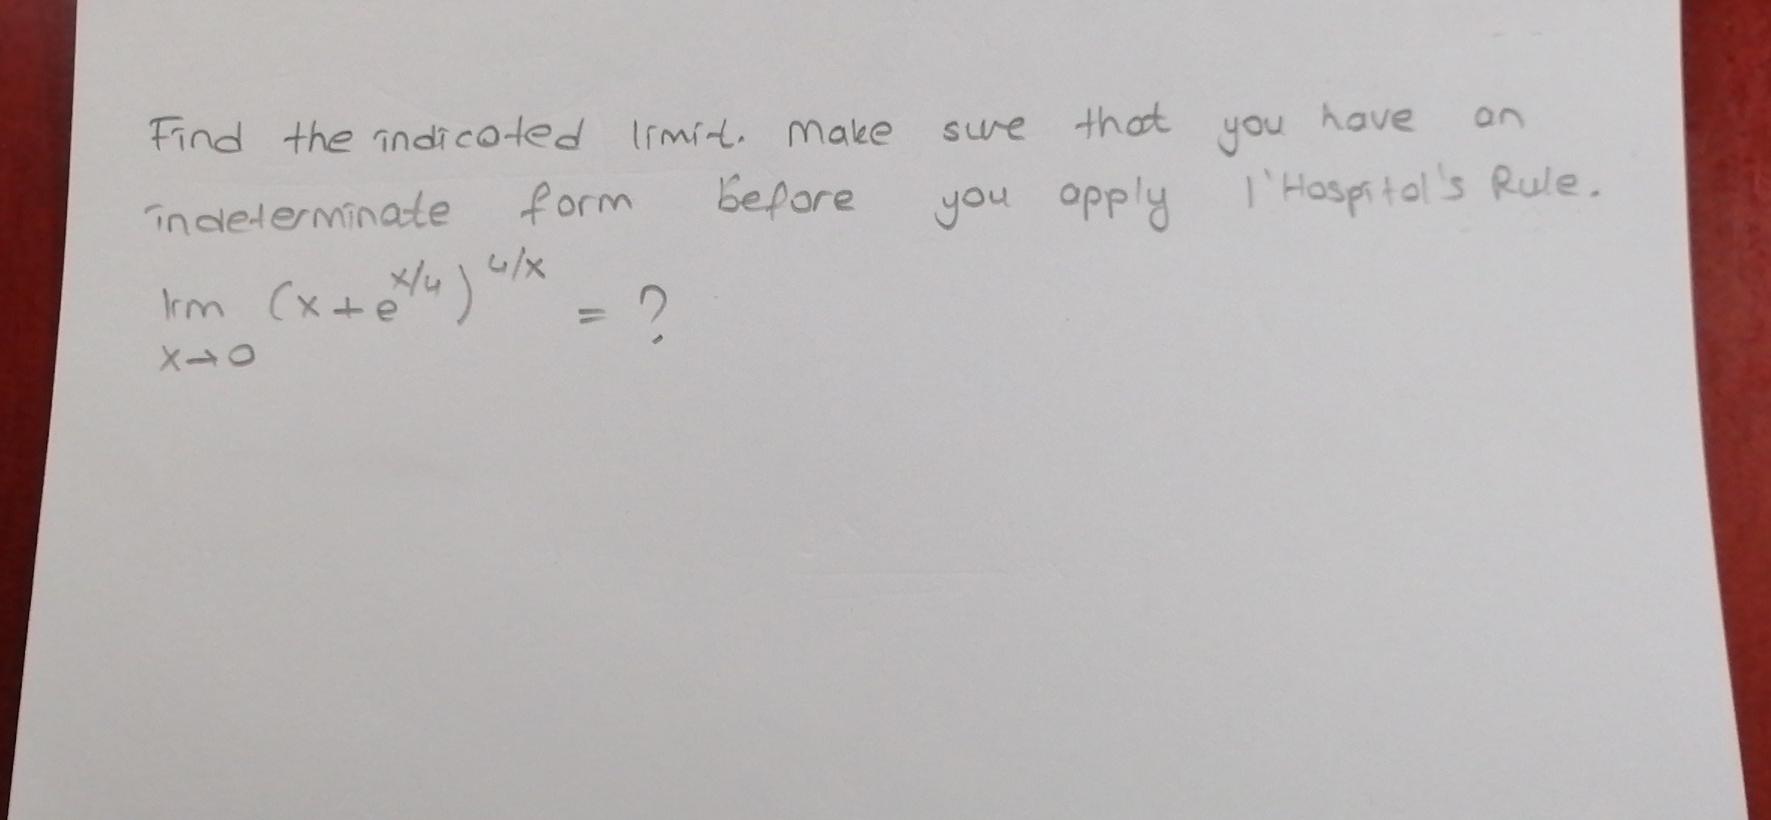 Find the indicated limit. Make sure that you have an
indeterminate form before you apply l'Hospital's Rule.
lim (x+e^x/4)^4/x = ?
x→0